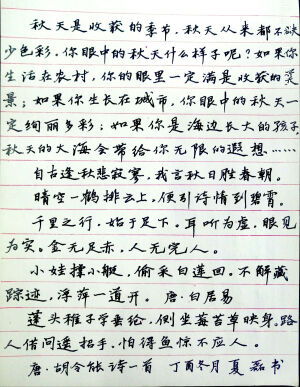 秋天是收获的季节，秋天从来都不缺
少色彩，你眼中的秋天什么样子呢？如果你
生活在农村，你的眼里一定满是收获的美
景；如果你生长在城市，你眼中的秋天一
定绚丽多彩；如果你是海边长大的孩子，
秋天的大海会带给你无限的遐想……
自古逢秋悲寂寥，我言秋日胜春朝。
晴空一鹤排云上，便引诗情到碧霄。
千里之行，始于足下。耳听为虚，眼见
为实。金无足赤，人无完人。
小娃撑小艇，偷采白莲回。不解藏
踪迹，浮萍一道开。唐·白居易
蓬头稚子学垂纶，侧坐莓苔草映身。路
人借问遥招手，怕得鱼惊不应人。
唐·胡令能诗一首 丁酉冬月夏磊书